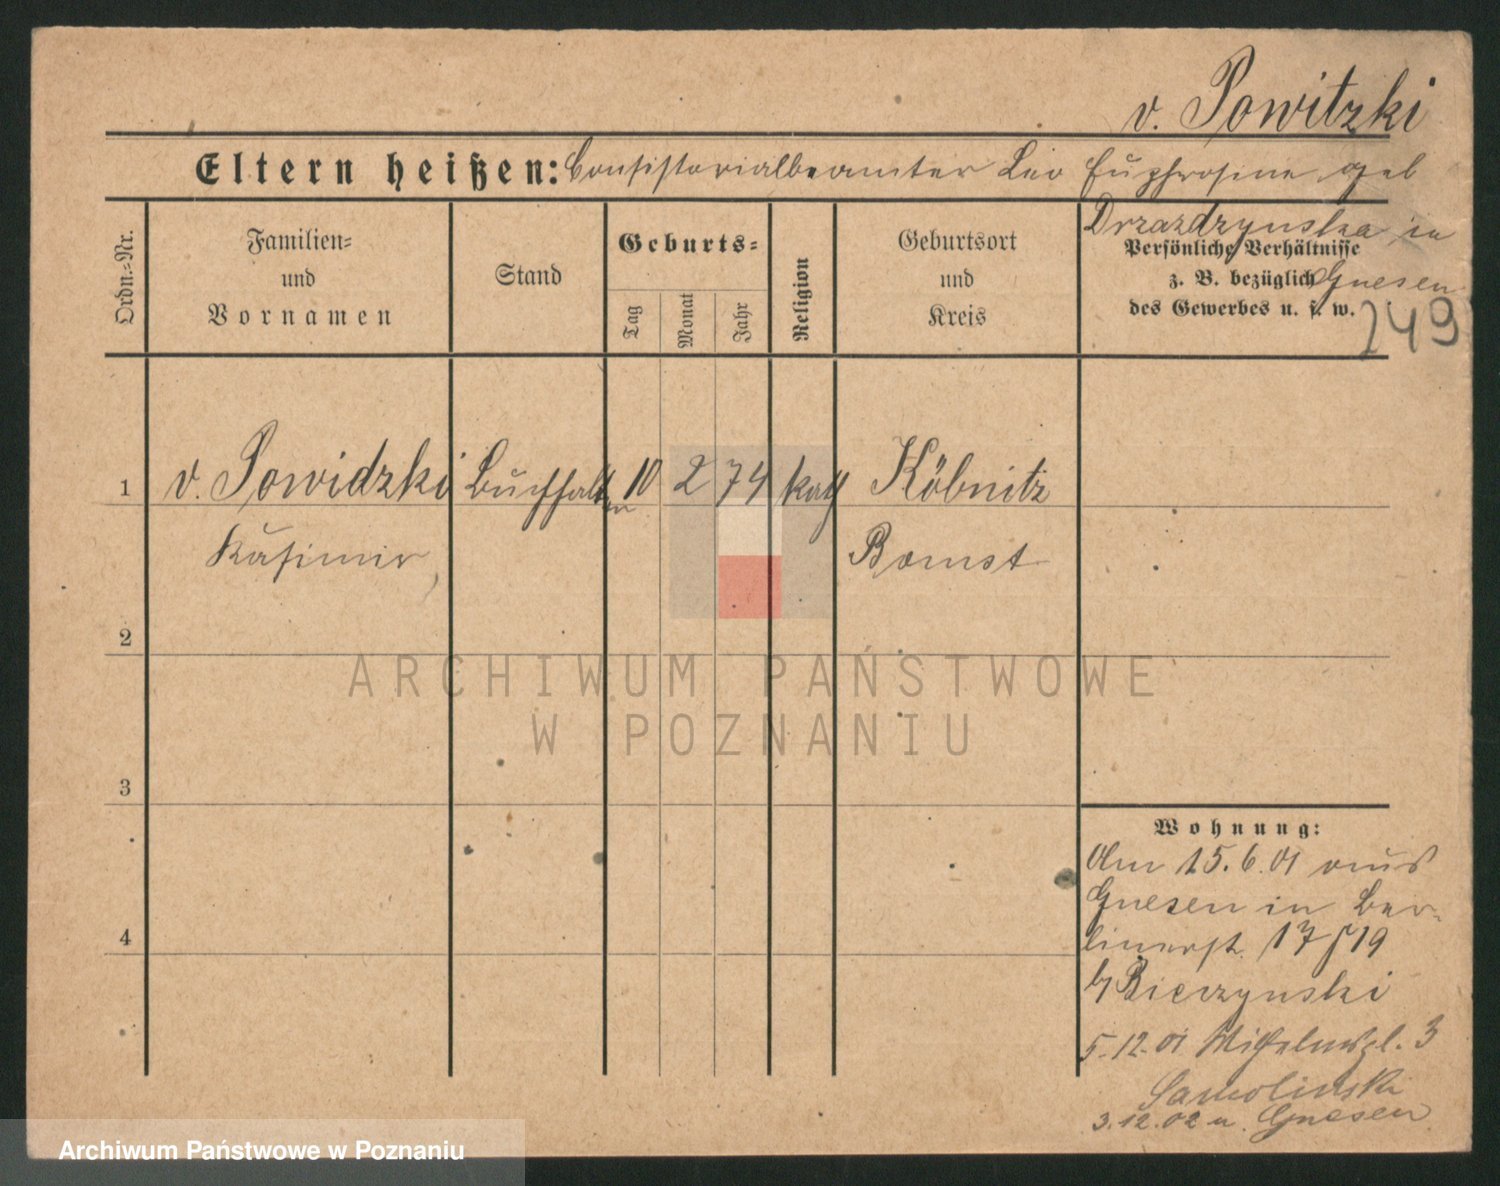 v. Powitzki
Eltern heißen: Consistorialbeamter Leo Euphrosine geb
Drzazdzynska in
Gnesen
249
Ordn.=Nr.
Familien=
und
Vornamen
Stand
Geburts=
Tag
Monat
Jahr
Religion
Geburtsort
und
Kreis
Persönliche Verhältnisse
z. B. bezüglich
des Gewerbes u. s. w.
1 v. Powidzki Buchhalter 10 2 74 kath Köbnitz
Kasimir Bomst
2
3
4
Wohnung:
Am 15.6.01 aus
Gnesen in Ber-
linerstr. 17/19
b/ Bierzynski
5.12.01 Wilhelmspl. 3
3.12.02 n. Gnesen
ARCHIWUM PAŃSTWOWE
W POZNANIU
Archiwum Państwowe w Poznaniu